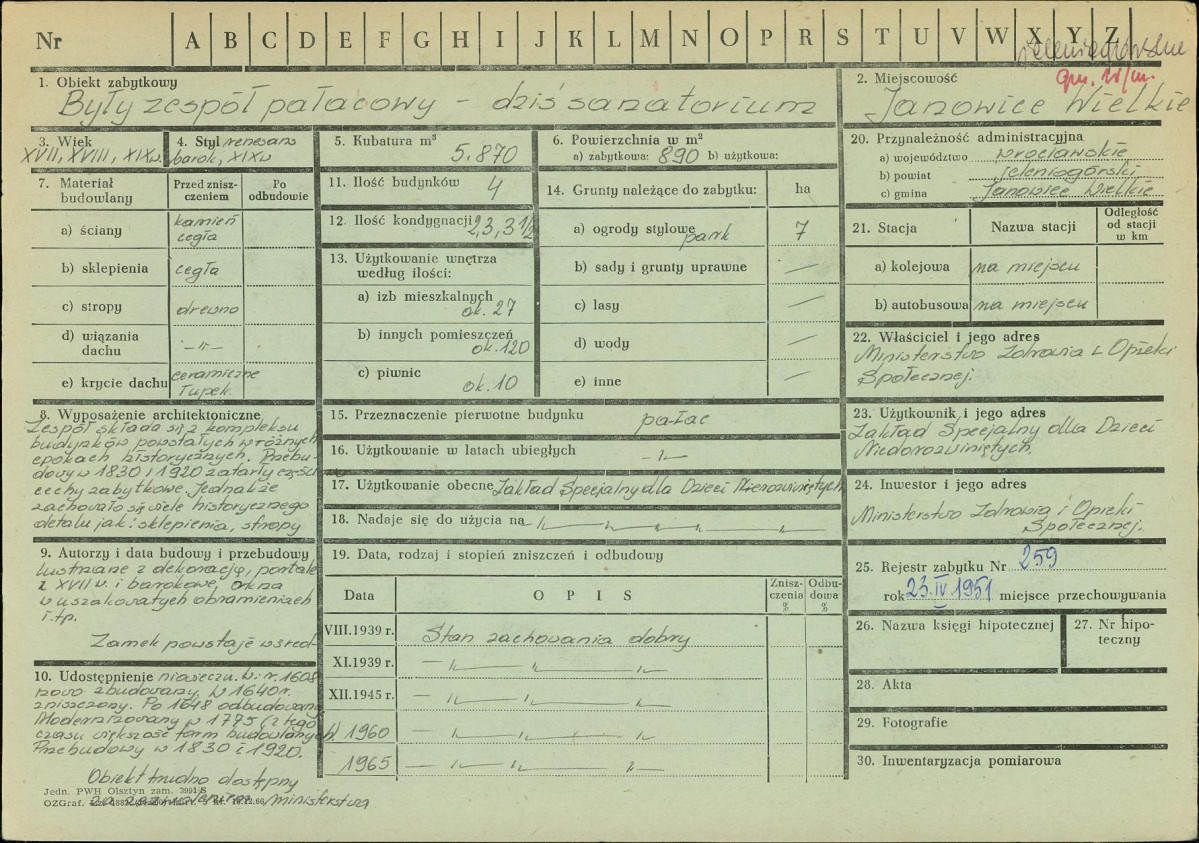 Nr A B C D E F G H I J K L M N O P R S T U V W X Y Z
gm. w/m.
1. Obiekt zabytkowy
Były zespół pałacowy - dziś sanatorium
2. Miejscowość
Janowice Wielkie
3. Wiek
XVII, XVIII, XIXw.
4. Styl renesans
barok, XIXw
5. Kubatura m³
5.870
6. Powierzchnia w m²
a) zabytkowa: 890 b) użytkowa:
7. Materiał budowlany
Przed zniszczeniem
Po odbudowie
a) ściany kamień
cegła
b) sklepienia cegła
c) stropy drewno
d) wiązania dachu -"-
e) krycie dachu ceramiczne
łupek.
8. Wyposażenie architektoniczne
Zespół składa się z kompleksu
budynków powstałych w różnych
epokach historycznych. Przebu-
dowy w 1830 i 1920 zatarły częściowo
cechy zabytkowe. Jednakże
zachowało się wiele historycznego
detalu jak: sklepienia, stropy
9. Autorzy i data budowy i przebudowy
lustrzane z dekoracją, portale
z XVII w. i barokowe, okna
w uszakowatych obramieniach
i.tp.
Zamek powstaje w śred-
10. Udostępnienie niowieczu. W. r. 1608
nowo zbudowany. W 1640r.
zniszczony. Po 1648 odbudowany
Modernizowany w 1775 (z tego
czasu większość form budowlanych).
Przebudowy w 1830 i 1920.
Obiekt trudno dostępny
za zezwoleniem ministerstwa
Jedn. PWH Olsztyn zam. 3991/S
OZGraf.
11. Ilość budynków 4
12. Ilość kondygnacji 2, 3, 3 1/2
13. Użytkowanie wnętrza
według ilości:
a) izb mieszkalnych
ok. 27
b) innych pomieszczeń
ok. 120
c) piwnic
ok. 10
14. Grunty należące do zabytku: ha
a) ogrody stylowe park 7
b) sady i grunty uprawne —
c) lasy —
d) wody —
e) inne —
15. Przeznaczenie pierwotne budynku pałac
16. Użytkowanie w latach ubiegłych -"-
17. Użytkowanie obecne Zakład Specjalny dla Dzieci Nierozwiniętych
18. Nadaje się do użycia na -"- " " "
19. Data, rodzaj i stopień zniszczeń i odbudowy
Data OPIS Zniszczenia % Odbudowa %
VIII.1939 r. Stan zachowania dobry
XI.1939 r. -"- " "
XII.1945 r. -"- " "
1960 -"- " "
1965 -"- " "
20. Przynależność administracyjna
a) województwo wrocławskie
b) powiat jeleniogórski
c) gmina Janowice Wielkie
21. Stacja Nazwa stacji Odległość od stacji w km
a) kolejowa na miejscu
b) autobusowa na miejscu
22. Właściciel i jego adres
Ministerstwo Zdrowia i Opieki
Społecznej.
23. Użytkownik i jego adres
Zakład Specjalny dla Dzieci
Niedorozwiniętych.
24. Inwestor i jego adres
Ministerstwo Zdrowia i Opieki
Społecznej.
25. Rejestr zabytku Nr 259
rok 23.IV 1951 miejsce przechowywania
26. Nazwa księgi hipotecznej
27. Nr hipoteczny
28. Akta
29. Fotografie
30. Inwentaryzacja pomiarowa